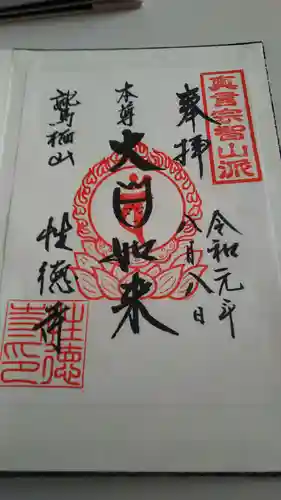 真言宗智山派
奉拝
令和元年
八月八日
本尊
大日如来
鷲栖山
性徳寺